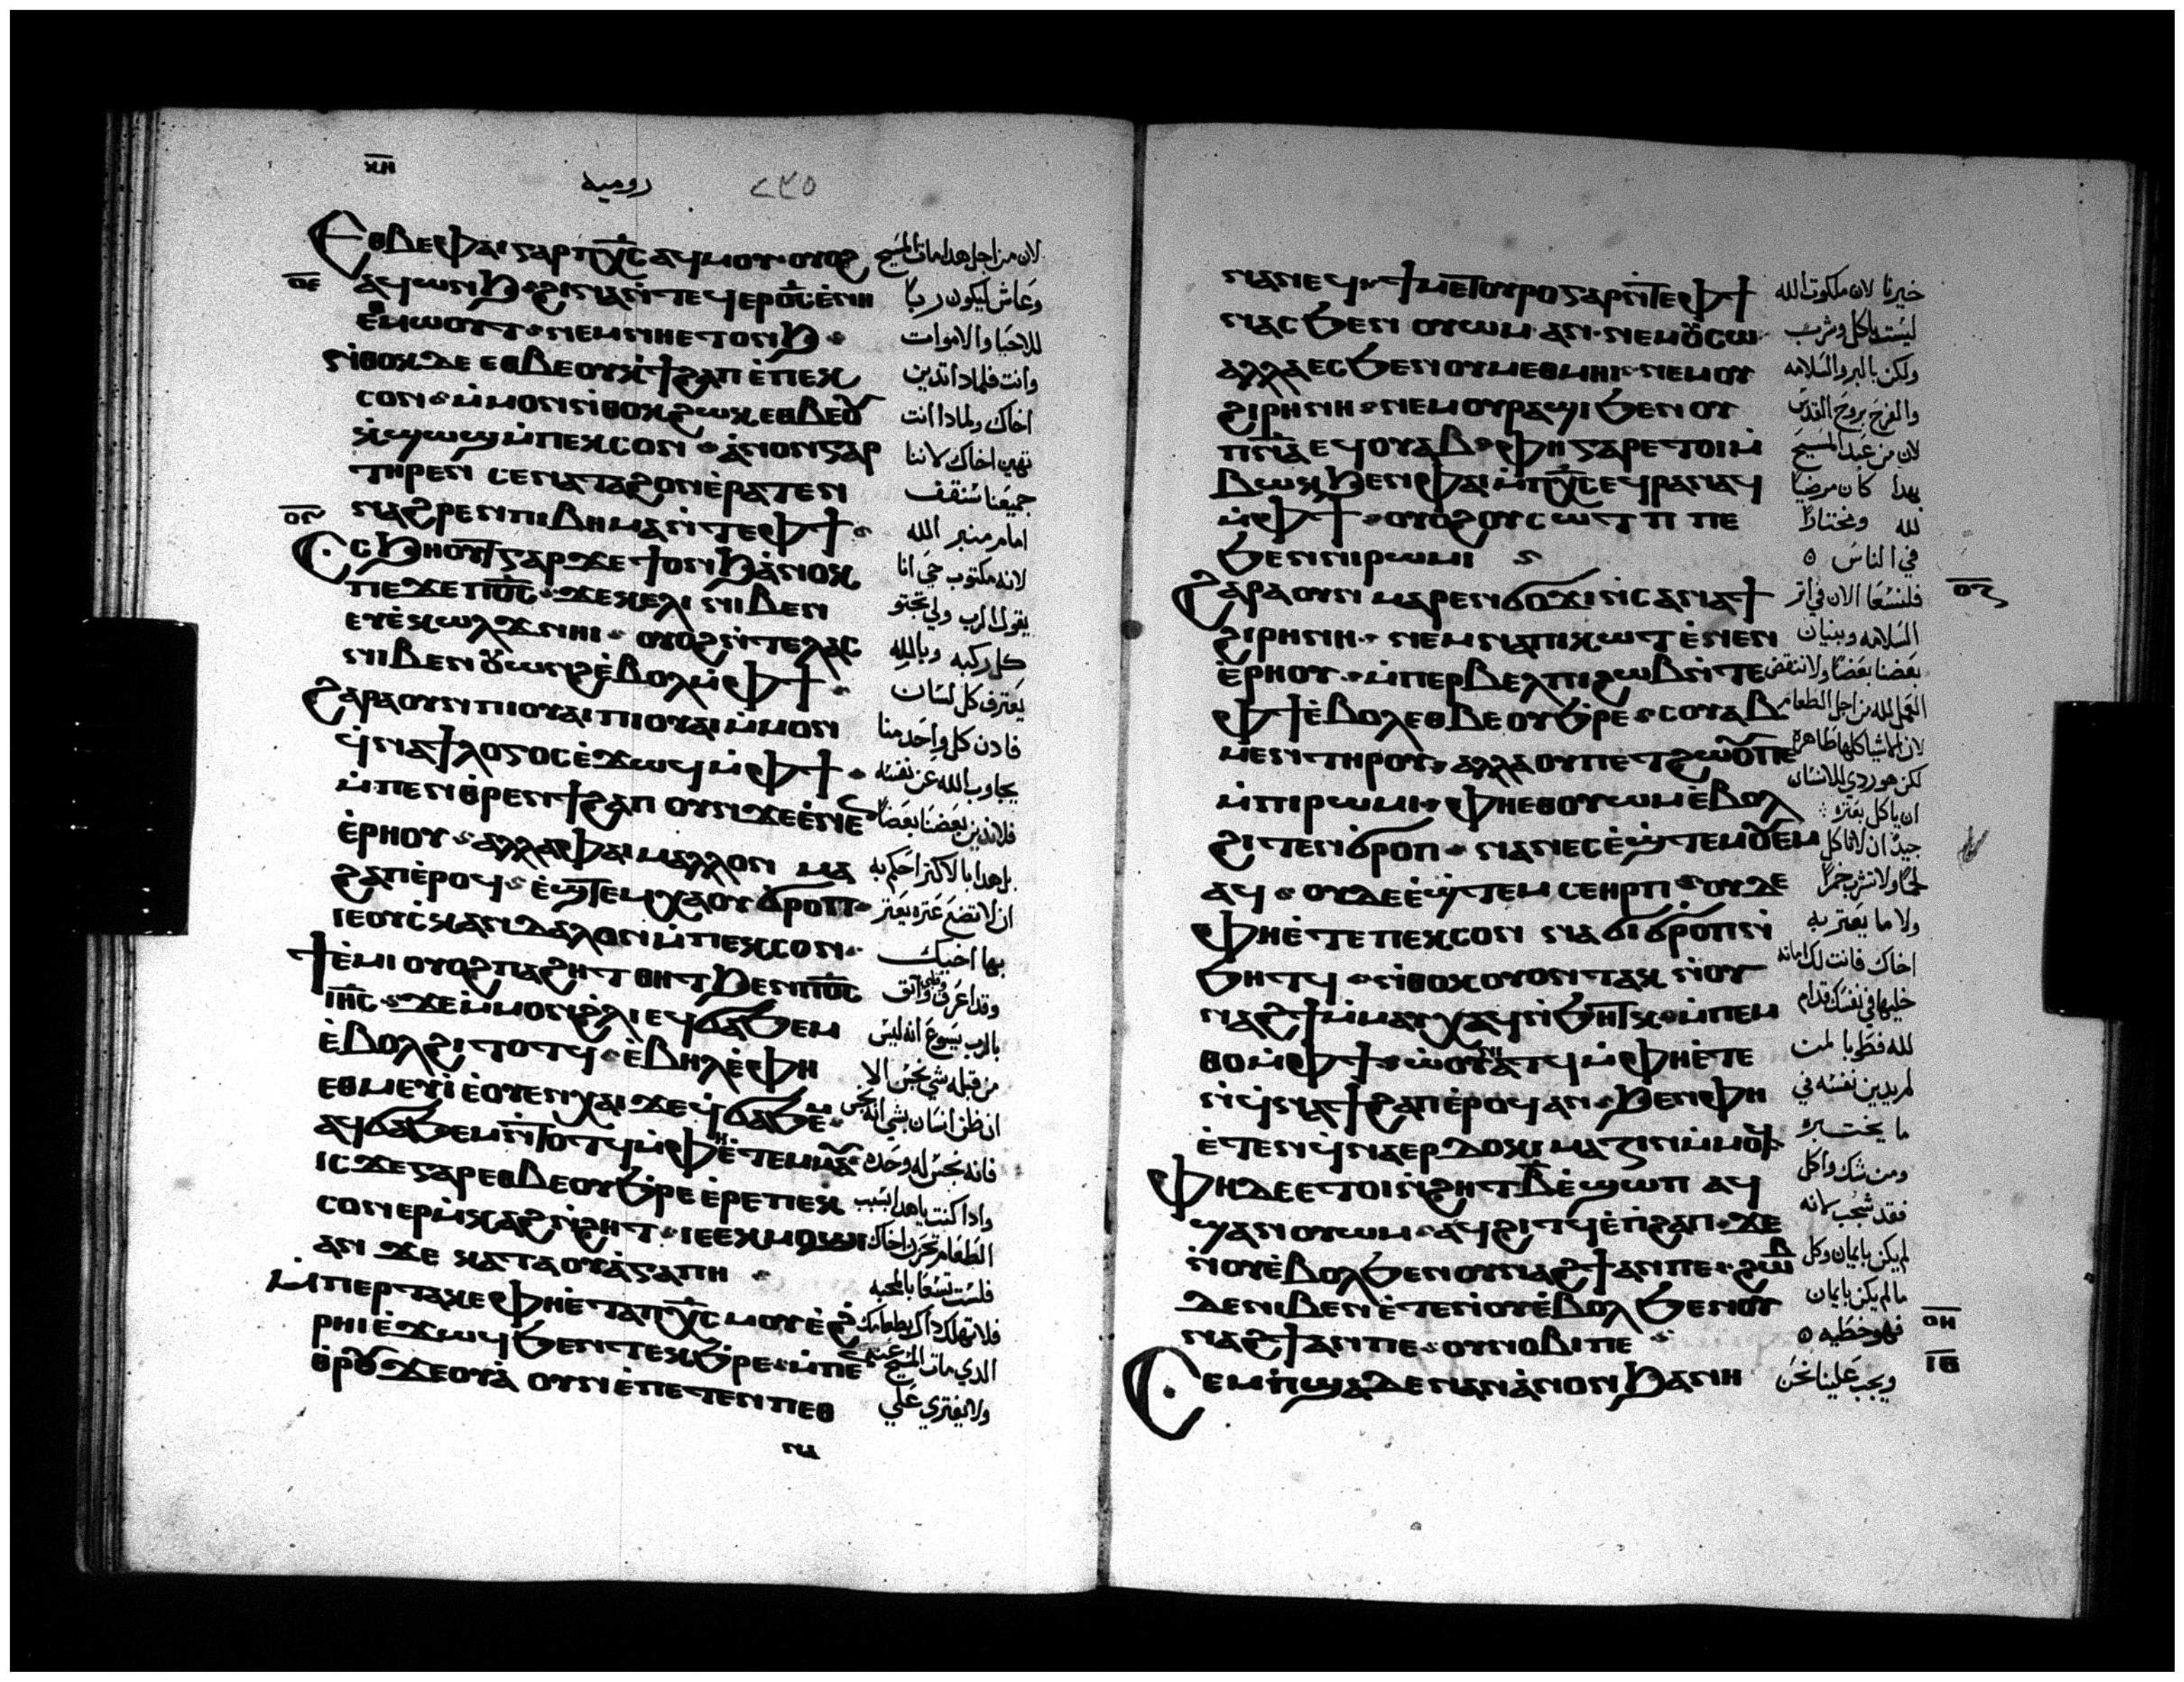 ⲕⲏ
روميه
٢٣٥
Ⲉⲑⲃⲉⲫⲁⲓⲅⲁⲣⲡⲭ̅ⲥ̅ⲁϥⲙⲟⲩ⳿ⲟⲩⲟϩ
ⲟⲉ
ⲁϥⲱⲛϧ⳿ϩⲓⲛⲁⲛ̀ⲧⲉϥⲉⲣⲟ̅ⲥ̅ⲉ̀ⲛⲏ
ⲉⲑⲙⲱⲟⲩⲧ⳿ⲛⲉⲙⲛⲏⲉⲧⲟⲛϧ⳿
ⲛ̀ⲑⲟⲕⲇⲉ ⲉⲑⲃⲉⲟⲩⲕ̀ϯϩⲁⲡ ⲉ̀ⲡⲉⲕ
ⲥⲟⲛ⳿ⲙ̀ⲙⲟⲛⲛ̀ⲑⲟⲕϩⲱⲕⲉⲑⲃⲉⲟⲩ
ⲕ̀ϣⲱϣⲙ̀ⲡⲉⲕⲥⲟⲛ⳿ⲁ̀ⲛⲟⲛⲅⲁⲣ
ⲧⲏⲣⲉⲛ ⲥⲉⲛⲁⲧⲁϩⲟⲛⲉ̀ⲣⲁⲧⲉⲛ
ⲛⲁϩⲣⲉⲛⲡⲓⲃⲏⲙⲁⲛ̀ⲧⲉⲫϯ⳿
ⲟⲋ
Ⲥⲥϧⲏⲟⲩⲧⲅⲁⲣϫⲉϯⲟⲛϧⲁ̀ⲛⲟⲕ
ⲡⲉϫⲉⲡⲟ̅ⲥ̅⳿ϫⲉⲕⲉⲗⲓ ⲛⲓⲃⲉⲛ
ⲉⲩⲉ̀ⲕⲱⲗϫⲛⲏⲓ⳿ⲟⲩⲟϩⲛ̀ⲧⲉⲗⲁⲥ
ⲛⲓⲃⲉⲛⲟⲩⲱⲛϩⲉ̀ⲃⲟⲗⲙ̀ⲫϯ⳿
ϩⲁⲣⲁⲟⲩⲛⲡⲓⲟⲩⲁⲓⲡⲓⲟⲩⲁⲓⲙ̀ⲙⲟⲛ
ϥ̀ⲛⲁϯⲗⲟⲅⲟⲥⲉ̀ϫⲱϥⲙ̀ⲫϯ⳿
ⲙ̀ⲡⲉⲛⲑⲣⲉⲛϯϩⲁⲡ ⲟⲩⲛϫⲉⲉ̀ⲛⲉ
ⲉ̀ⲣⲏⲟⲩ⳿ⲁⲗⲗⲁⲫⲁⲓⲙⲁⲗⲗⲟⲛ ⲙⲁ
ϩⲁⲡⲉ̀ⲣⲟϥ⳿ⲉ̀ϣⲧⲉⲙⲭⲁⲟⲩϭⲣⲟⲡ⳿
ⲓⲉⲟⲩⲥ̀ⲕⲁⲛⲇⲁⲗⲟⲛⲙ̀ⲡⲉⲕⲥⲟⲛ⳿
ϯⲉ̀ⲙⲓ ⲟⲩⲟϩⲡⲁϩⲏⲧ ⲑⲏⲧϧⲉⲛⲡⲟ̅ⲥ̅
ⲓⲏ̅ⲥ̅⳿ϫⲉⲙ̀ⲙⲟⲛϩ̀ⲗⲓ ⲉϥϭⲁϧⲉⲙ
ⲉ̀ⲃⲟⲗϩⲓⲧⲟⲧϥ⳿ⲉ̀ⲃⲏⲗⲉ̀ⲫⲏ
ⲉⲑⲙⲉⲩⲓ̀ⲉ̀ⲟⲩⲉⲛⲭⲁⲓ ϫⲉϥ̀ϭⲁϧⲉⲙ
ⲁϥϭⲁϧⲉⲙⲛ̀ⲧⲟⲧϥⲙ̀ⲫⲏⲉ̀ⲧⲉⲙⲙⲁⲩ
ⲓⲥϫⲉⲅⲁⲣⲉⲑⲃⲉⲟⲩϧ̀ⲣⲉ ⲉ̀ⲣⲉⲡⲉⲕ
ⲥⲟⲛⲉⲣⲙ̀ⲕⲁϩⲛ̀ϩⲏⲧ⳿ⲓⲉⲉⲕⲙⲟϣⲓ
ⲁⲛ ϫⲉ ⲕⲁⲧⲁⲟⲩⲁ̀ⲅⲁⲡⲏ⳿
ⲙ̀ⲡⲉⲣⲧⲁⲕⲉⲫⲏⲉ̀ⲧⲁⲡⲭ̅ⲥ̅ⲙⲟⲩⲉ̀ϩ
ⲣⲏⲓⲉ̀ϫⲱϥϧⲉⲛⲧⲉⲕϧ̀ⲣⲉ⳿ⲙ̀ⲡⲉ
ⲑⲣⲟⲩϫⲉⲟⲩⲁ̀ ⲟⲩⲛⲉ̀ⲡⲉⲧⲉⲛⲡⲉⲑ
ⲛⲁ
لان من اجل هدا مات المسيح
وعاش ليكون ربا
للاحيا والاموات
وانت فلمادا تدين
اخاك ولمادا انت
تهين اخاك لاننا
جميعنا سنقف
امام منبر الله
لانه مكتوب حي انا
يقول الرب ولي تجتو
كل ركبه وبالله
يعترف كل لسان
فادن كل واحد منا
يجاوب الله عن نفسه
فلا ندين بعضنا بعضا
بل هدا بالاكتر احكم به
ان لا تضع عتره يعتر
بها اخيك
وقد اعرف واتق
بالرب يسوع انه ليس
من قبله شي نجس الا
ان ظن انسان بشي انه نجس
فانه نجس له وحده
وادا كنت ياهدا بسبب
الطعام تحزن اخاك
فلست تسعا بالمحبه
فلا تهلك داك بطعامك
الدي مات المسيح عنه
ولا يفتري علي
ⲛⲁⲛⲉϥ⳿ϯⲙⲉⲧⲟⲩⲣⲟⲅⲁⲣⲛ̀ⲧⲉⲫϯ
ⲛⲁⲥϧⲉⲛ ⲟⲩⲱⲙ⳿ⲁⲛ⳿ⲛⲉⲙⲟⲩⲥⲱ
ⲁⲗⲗⲁⲉⲥϧⲉⲛⲟⲩⲙⲉⲑⲙⲏⲓ⳿ⲛⲉⲙⲟⲩ
ϩⲓⲣⲏⲛⲏ⳿ⲛⲉⲙⲟⲩⲣⲁϣⲓϧⲉⲛⲟⲩ
ⲡ̅ⲛ̅ⲁ̅ⲉϥⲟⲩⲁⲃ⳿ⲫⲏⲅⲁⲣⲉⲧⲟⲓⲙ̀
ⲃⲱⲕϧⲉⲛⲫⲁⲓⲙ̀ⲡⲭ̅ⲥ̅ⲉϥⲣⲁⲛⲁϥ
ⲙ̀ⲫϯ⳿ⲟⲩⲟϩⲟⲩⲥⲱⲧⲡ ⲡⲉ
ϧⲉⲛⲛⲓⲣⲱⲙⲓ
ϩⲁⲣⲁⲟⲩⲛ ⲙⲁⲣⲉⲛϭⲟϫⲓⲛ̀ⲥⲁⲛⲁϯ
ⲟⲍ
ϩⲓⲣⲏⲛⲏ⳿ⲛⲉⲙⲛⲁⲡⲓⲕⲱⲧⲉ̀ⲛⲉⲛ
ⲉ̀ⲣⲏⲟⲩ⳿ⲙ̀ⲡⲉⲣⲃⲉⲗⲡⲓϩⲱⲃⲛ̀ⲧⲉ
ⲫϯⲉ̀ⲃⲟⲗⲉⲑⲃⲉⲟⲩϧ̀ⲣⲉ⳿ⲥⲟⲩⲁⲃ
ⲙⲉⲛⲧⲏⲣⲟⲩ⳿ⲁⲗⲗⲁⲟⲩⲡⲉⲧϩⲱⲟⲩⲡⲉ
ⲙ̀ⲡⲓⲣⲱⲙⲓ⳿ⲫⲏⲉⲑⲟⲩⲱⲙⲉ̀ⲃⲟⲗ
ϩⲓⲧⲉⲛϭ̀ⲣⲟⲡ⳿ⲛⲁⲛⲉⲥⲉ̀ϣⲧⲉⲙⲟⲩⲉⲙ
ⲁϥ⳿ⲟⲩⲇⲉⲉ̀ϣⲧⲉⲙ ⲥⲉⲏⲣⲡ⳿ⲟⲩⲇⲉ
ⲫⲏⲉ̀ⲧⲉⲡⲉⲕⲥⲟⲛ ⲛⲁϭⲓϭ̀ⲣⲟⲡⲛ̀
ϧⲏⲧϥ⳿ⲛ̀ⲑⲟⲕⲟⲩⲟⲛⲧⲁⲕ ⲛ̀ⲟⲩ
ⲛⲁϩϯⲙ̀ⲙⲁⲩⲭⲁϥⲛ̀ϧⲏⲧⲕ⳿ⲙ̀ⲡⲉⲙ
ⲑⲟⲙ̀ⲫϯ⳿ⲱ̀ⲟⲩⲛⲓⲁⲧϥⲙ̀ⲫⲏⲉ̀ⲧⲉ
ⲛ̀ϥ̀ⲛⲁϯϩⲁⲡⲉ̀ⲣⲟϥⲁⲛ⳿ϧⲉⲛⲫⲏ
ⲉ̀ⲧⲉⲛϥ̀ⲛⲁⲉⲣⲇⲟⲕⲓⲙⲁⲍⲓⲛⲙ̀ⲙⲟϥ
ⲫⲏⲇⲉⲉⲧⲟⲓⲛ̀ϩⲏⲧⲃ̅ⲉ̀ϣⲱⲡ ⲁϥ
ϣⲁⲛⲟⲩⲱⲙ⳿ⲁϥϩⲓⲧϥⲉ̀ⲡ̀ϩⲁⲡ⳿ϫⲉ
ⲛ̀ⲟⲩⲉ̀ⲃⲟⲗϧⲉⲛⲟⲩⲛⲁϩϯⲁⲛⲡⲉ⳿ϩⲱⲃ
ⲇⲉⲛⲓⲃⲉⲛⲉ̀ⲧⲉⲛ̀ⲟⲩⲉ̀ⲃⲟⲗ ϧⲉⲛⲟⲩ
ⲟⲏ
ⲛⲁϩϯⲁⲛⲡⲉ⳿ⲟⲩⲛⲟⲃⲓⲡⲉ⳿
ⲓⲑ
Ⲥⲉⲙⲡ̀ϣⲁⲇⲉⲛⲁⲛⲁ̀ⲛⲟⲛϧⲁⲛⲏ
خيرنا لان ملكوت الله
ليست باكل وشرب
ولكن بالبر والسلامه
والفرح بروح القدس
لان من عبد المسيح
بهدا كان مرضيا
لله ومختارا
في الناس ٥
فلنسعا الان في اتر
السلامه وبنيان
بعضنا بعضا ولا ننقض
العمل لله من اجل الطعام
لان الاشيا كلها طاهره
لكن هو ردي للانسان
ان ياكل بعتره
جيد ان لا تاكل
لحما ولا تشرب خمرا
ولا ما يعتر به
اخاك فانت لك امانه
خليها في نفسك قدام
الله فطوبا لمن
لم يدين نفسه في
ما يختبره
ومن شك واكل
فقد شجب لانه
لم يكن بايمان وكل
ما لم يكن بايمان
فهو خطيه ٥
ويجب علينا نحن